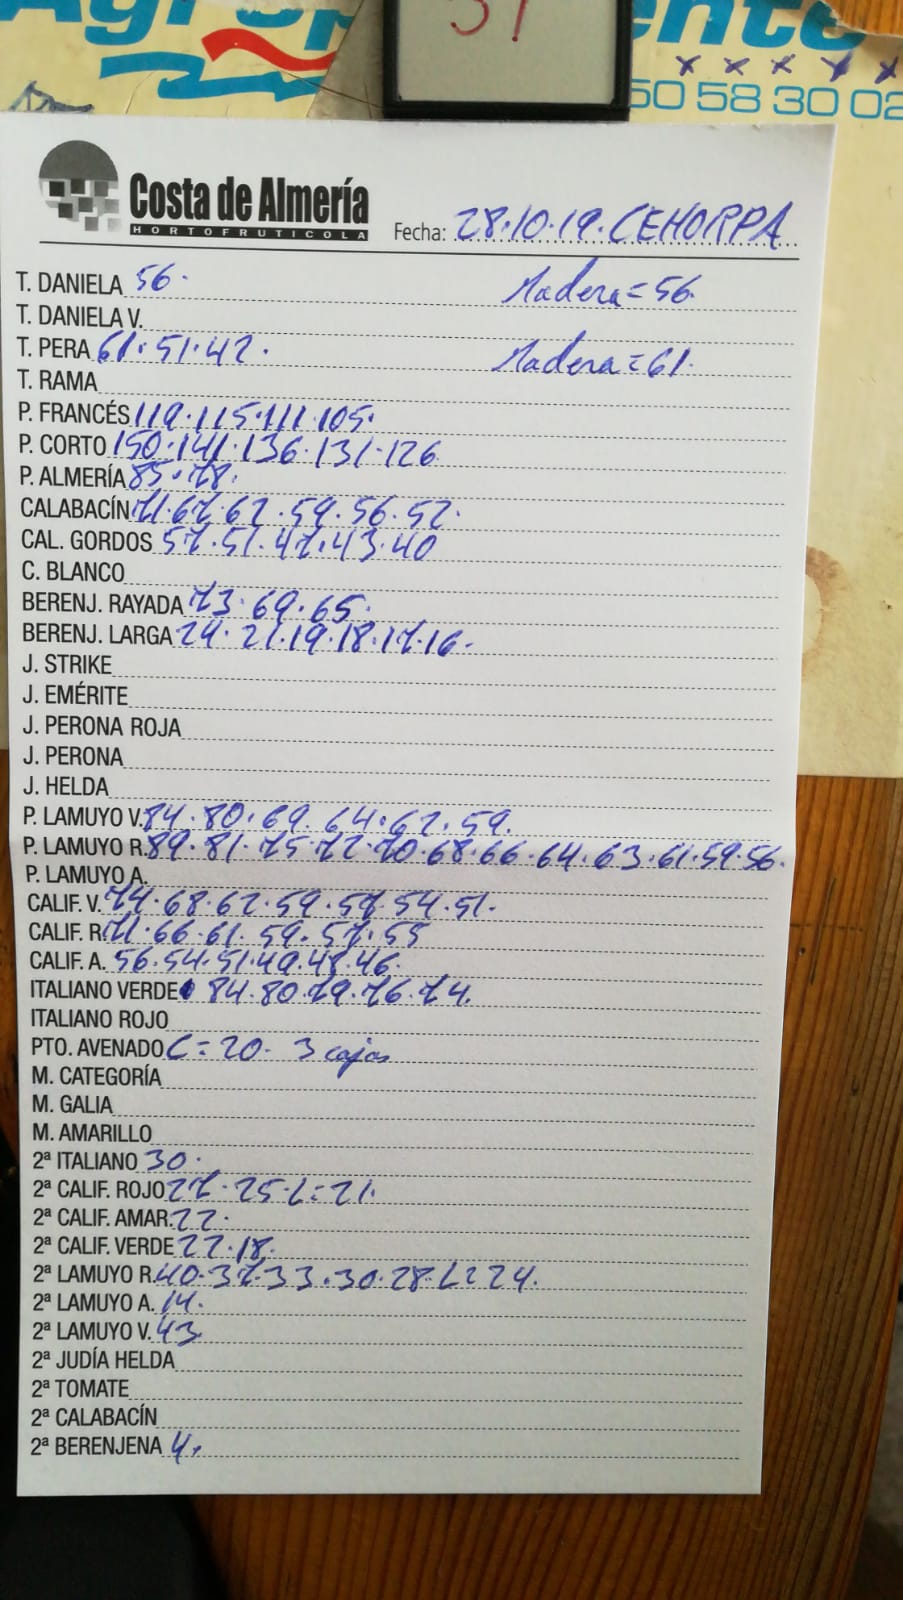 50 58 30 02
Costa de Almería
HORTOFRUTICOLA
Fecha: 28.10.19. CEHORPA
T. DANIELA 56. Madera=56.
T. DANIELA V.
T. PERA 61.51.42. Madera=61.
T. RAMA
P. FRANCÉS 119.115.111.105.
P. CORTO 150.141.136.131.126
P. ALMERÍA 85.78.
CALABACÍN 71.67.62.59.56.52.
CAL. GORDOS 57.51.47.43.40
C. BLANCO
BERENJ. RAYADA 73.69.65.
BERENJ. LARGA 24.21.19.18.17.16.
J. STRIKE
J. EMÉRITE
J. PERONA ROJA
J. PERONA
J. HELDA
P. LAMUYO V. 84.80.69.64.62.59.
P. LAMUYO R. 89.81.75.72.70.68.66.64.63.61.59.56.
P. LAMUYO A.
CALIF. V. 74.68.62.59.57.54.51.
CALIF. R. 71.66.61.59.57.55
CALIF. A. 56.54.51.49.47.46.
ITALIANO VERDE 84.80.79.76.74.
ITALIANO ROJO
PTO. AVENADO C=20. 3 cajas
M. CATEGORÍA
M. GALIA
M. AMARILLO
2ª ITALIANO 30.
2ª CALIF. ROJO 27.25.L=21.
2ª CALIF. AMAR. 22.
2ª CALIF. VERDE 22.18.
2ª LAMUYO R. 40.37.33.30.28.L=24.
2ª LAMUYO A. 14.
2ª LAMUYO V. 43
2ª JUDÍA HELDA
2ª TOMATE
2ª CALABACÍN
2ª BERENJENA 4.